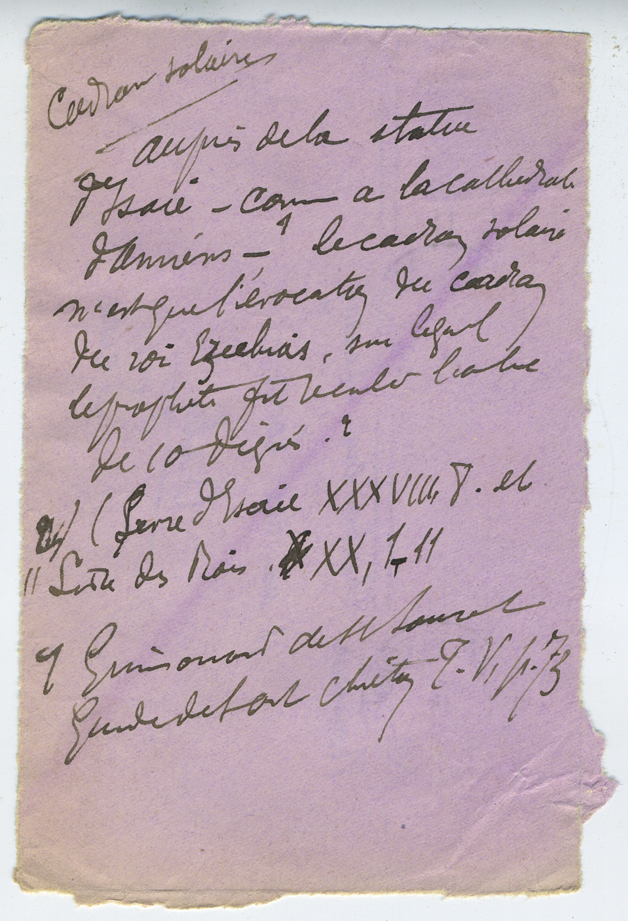 Cadran solaire
Auprès de la statue
d'Isaïe – comme a la cathédrale
d'Amiens – 1 le cadran solaire
n'est que l'évocation du cadran
du roi Ezechias, sur lequel
le prophète fit reculer l'ombre
de 10 degrés. 2
2/ (Livre d'Isaïe XXXVIII, 8. et
II Livre des Rois. XX, 1-11
1 Grimouard de St Laurent
Guide de l'art chrétien T. V, p. 73